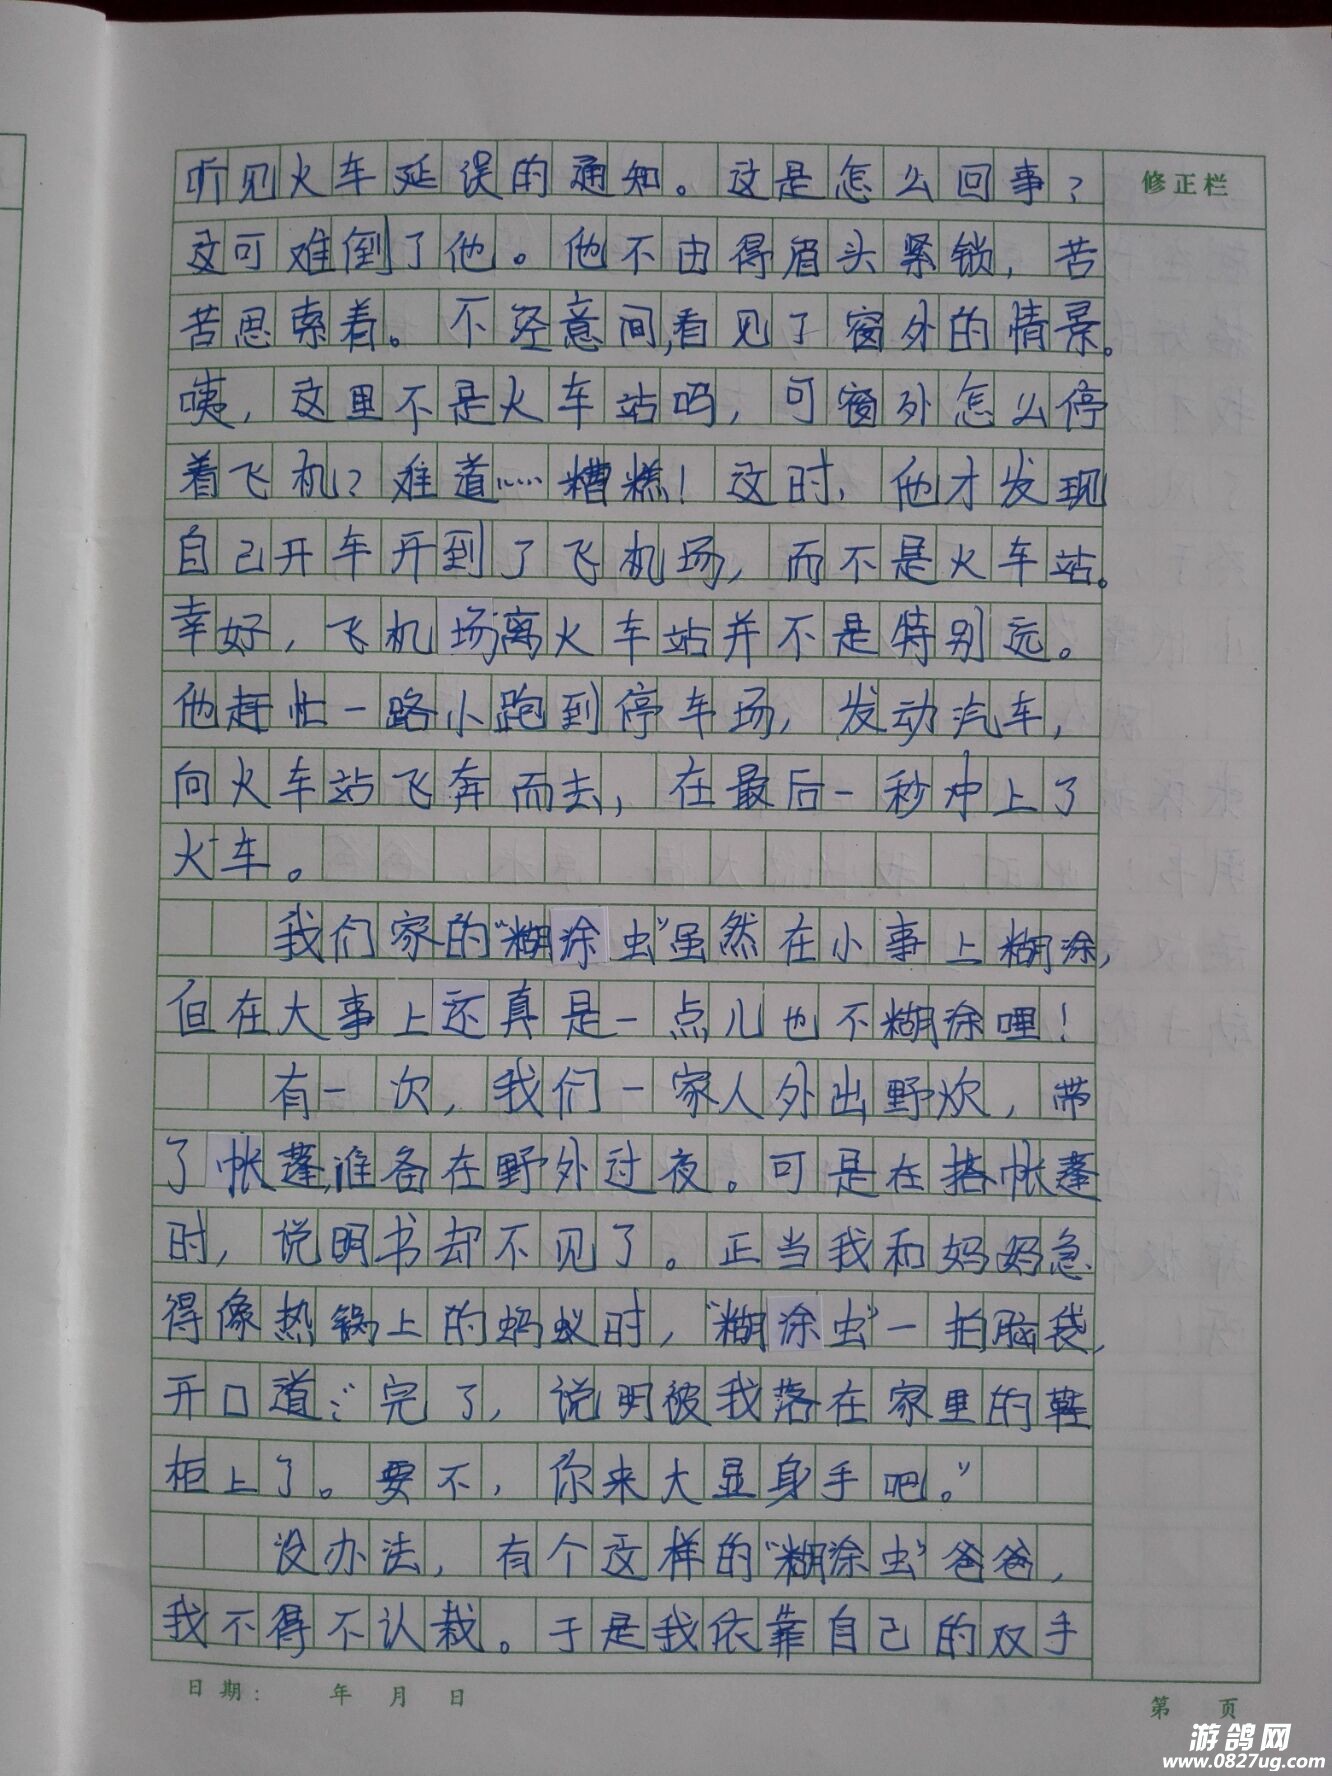 听见火车延误的通知。这是怎么回事？
修正栏
这可难倒了他。他不由得眉头紧锁，苦
苦思索着。不经意间，看见了窗外的情景。
咦，这里不是火车站吗，可窗外怎么停
着飞机？难道……糟糕！这时，他才发现
自己开车开到了飞机场，而不是火车站。
幸好，飞机场离火车站并不是特别远。
他赶忙一路小跑到停车场，发动汽车，
向火车站飞奔而去，在最后一秒冲上了
火车。
我们家的“糊涂虫”虽然在小事上糊涂，
但在大事上还真是一点儿也不糊涂哩！
有一次，我们一家人外出野炊，带
了帐蓬，准备在野外过夜。可是在搭帐蓬
时，说明书却不见了。正当我和妈妈急
得像热锅上的蚂蚁时，“糊涂虫”一拍脑袋，
开口道：“完了，说明被我落在家里的鞋
柜上了。要不，你来大显身手吧。”
没办法，有个这样的“糊涂虫”爸爸，
我不得不认栽。于是我依靠自己的双手
日期： 年 月 日
第 页
游鸽网
www.0827ug.com